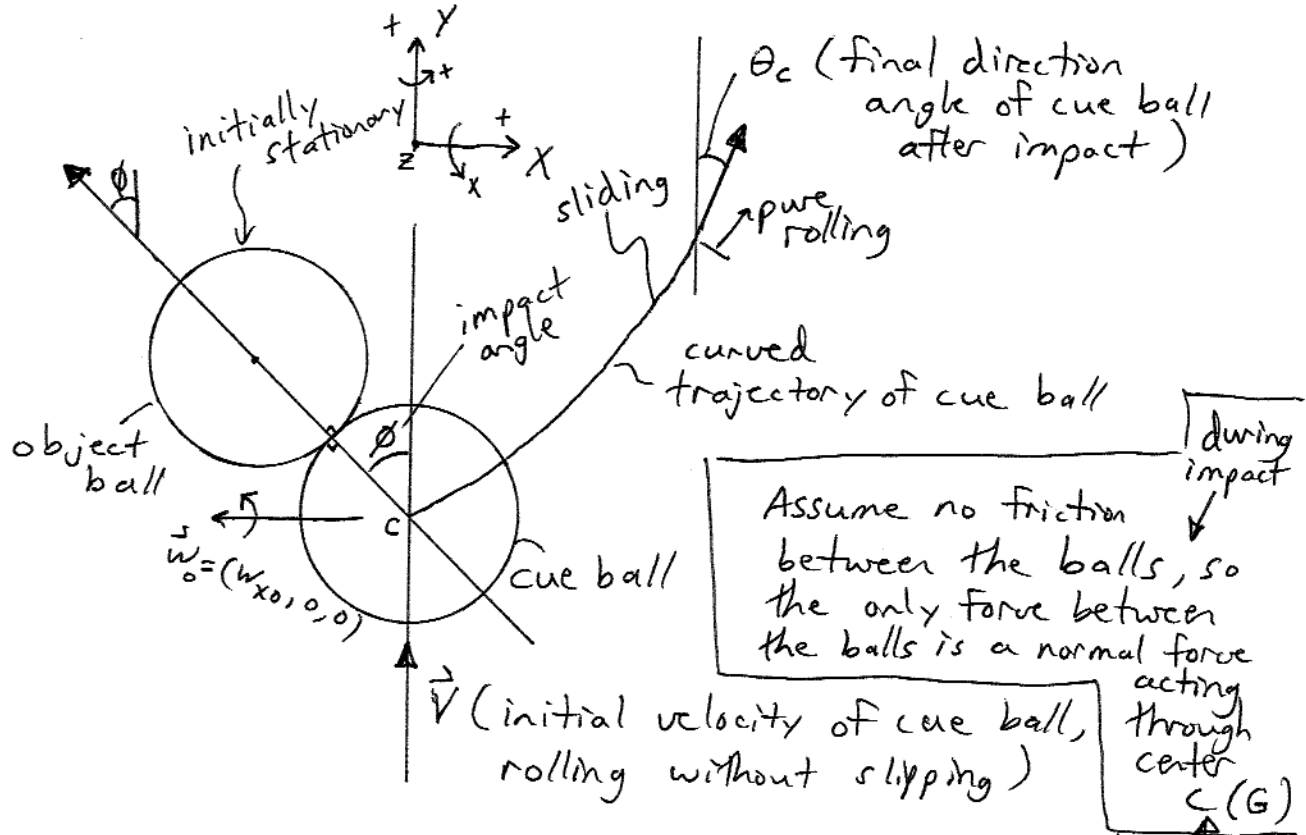 + Y
+
+
Z
X
x
initially
stationary
ϕ
θc (final direction
angle of cue ball
after impact)
sliding
pure
rolling
impact
angle
curved
trajectory of cue ball
object
ball
ϕ
c
w⃗₀=(wx0, 0, 0)
cue ball
V⃗ (initial velocity of cue ball,
rolling without slipping)
during
impact
Assume no friction
between the balls, so
the only force between
the balls is a normal force
acting
through
center
C (G)